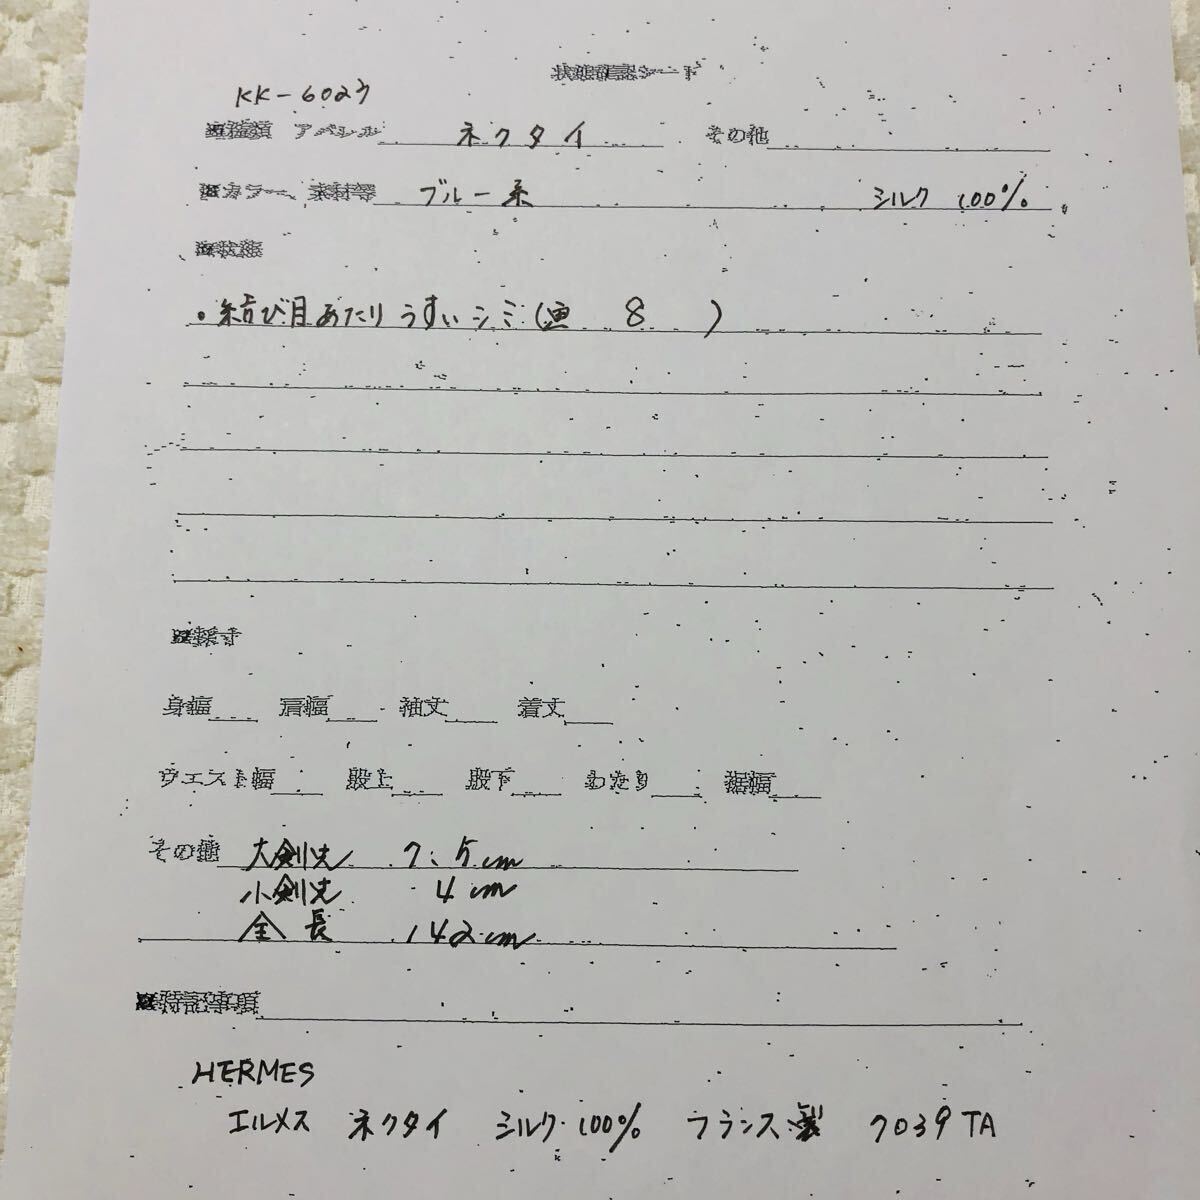 状態確認シート
KK-6027
■種類 アパレル ネクタイ その他
■カラー、素材等 ブルー系 シルク 100%
■状態
・結び目あたり うすいシミ(画 8 )
■採寸
身幅 肩幅 袖丈 着丈
ウエスト幅 股上 股下 わたり 裾幅
その他 大剣先 7.5cm
小剣先 4cm
全長 142cm
■特記事項
HERMES
エルメス ネクタイ シルク 100% フランス製 7039 TA